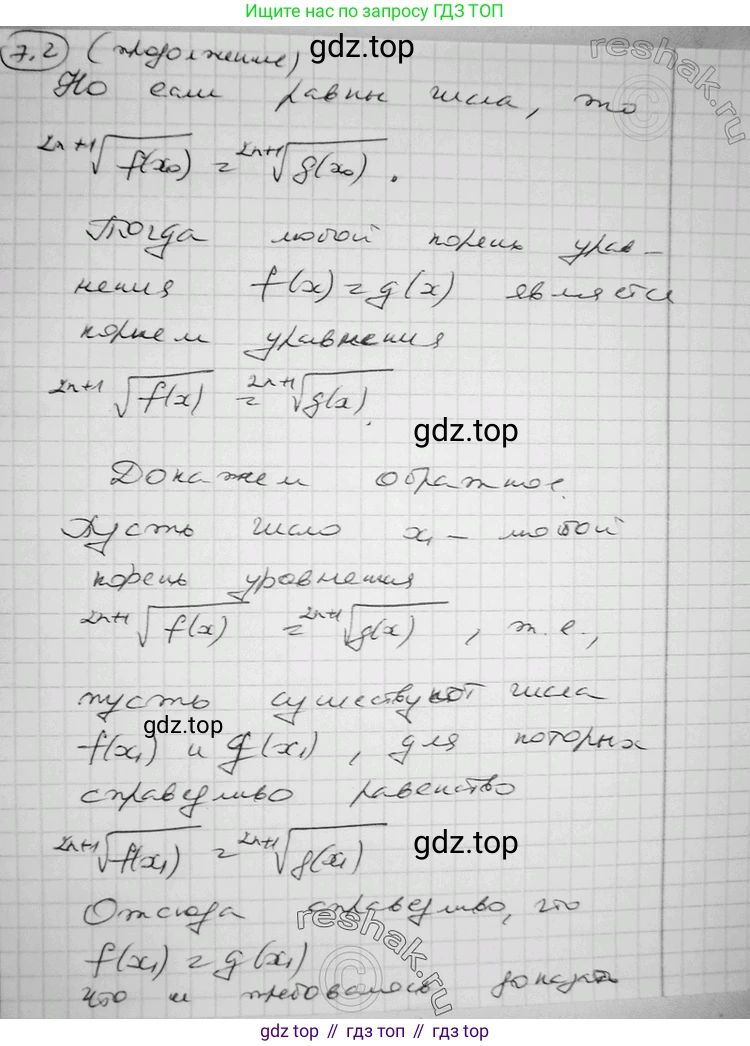 Ищите нас по запросу ГДЗ ТОП
7.2 (продолжение)
gdz.top
reshak.ru
Но если равны числа, то
²ⁿ⁺¹√f(x₀) = ²ⁿ⁺¹√g(x₀).
Тогда любой корень урав-
нения f(x) = g(x) является
корнем уравнения
²ⁿ⁺¹√f(x) = ²ⁿ⁺¹√g(x).
gdz.top
Докажем обратное.
Пусть число x₁ – любой
корень уравнения
²ⁿ⁺¹√f(x) = ²ⁿ⁺¹√g(x), т.е.,
пусть существуют числа
gdz.top
f(x₁) и g(x₁), для которых
справедливо равенство
²ⁿ⁺¹√f(x₁) = ²ⁿ⁺¹√g(x₁)
gdz.top
Отсюда справедливо, что
f(x₁) = g(x₁)
reshak.ru
что и требовалось доказать
gdz.top // гдз топ // gdz.top